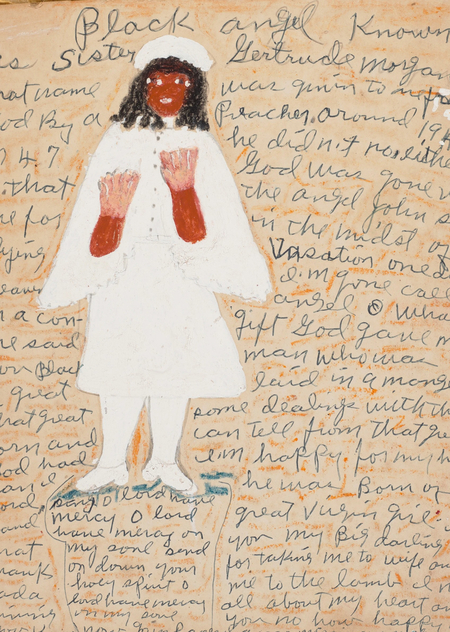 Black angel Known
is Sister Gertrude morgan
hat name was given to
God By a Preacher around 194
n 4.7 he did not no eithe
that God was gone
me for the angel John s
lying in the midst of
Vasation one d
i.m gone call
angel wha
n a con- gift God gave m
he said man who was
on Black laid in a mange
great some dealings with th
hat great can tell from that gre
orn and i.m happy for my h
God had he was Born of
great Virgin girl.
ord sang O lord have
and mercy O lord you my Big darling
have mercy on for taking me to wife an
hat my soul send me to the lamb
hank on down your all about my heart an
ada holy spirit O you no how happy
lord have mercy
on my soul
now